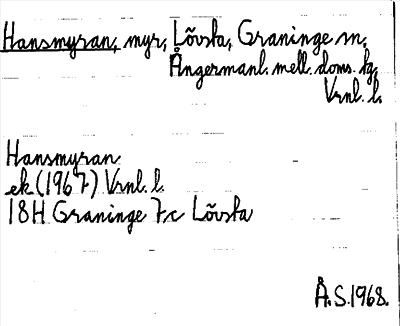 Hansmyran, myr, Lövsta, Graninge sn,
Ångermanl. mell. doms. hg,
Vrnl. l.
Hansmyran
ek (1967) Vrnl. l.
18H Graninge 7c Lövsta
Å.S. 1968.